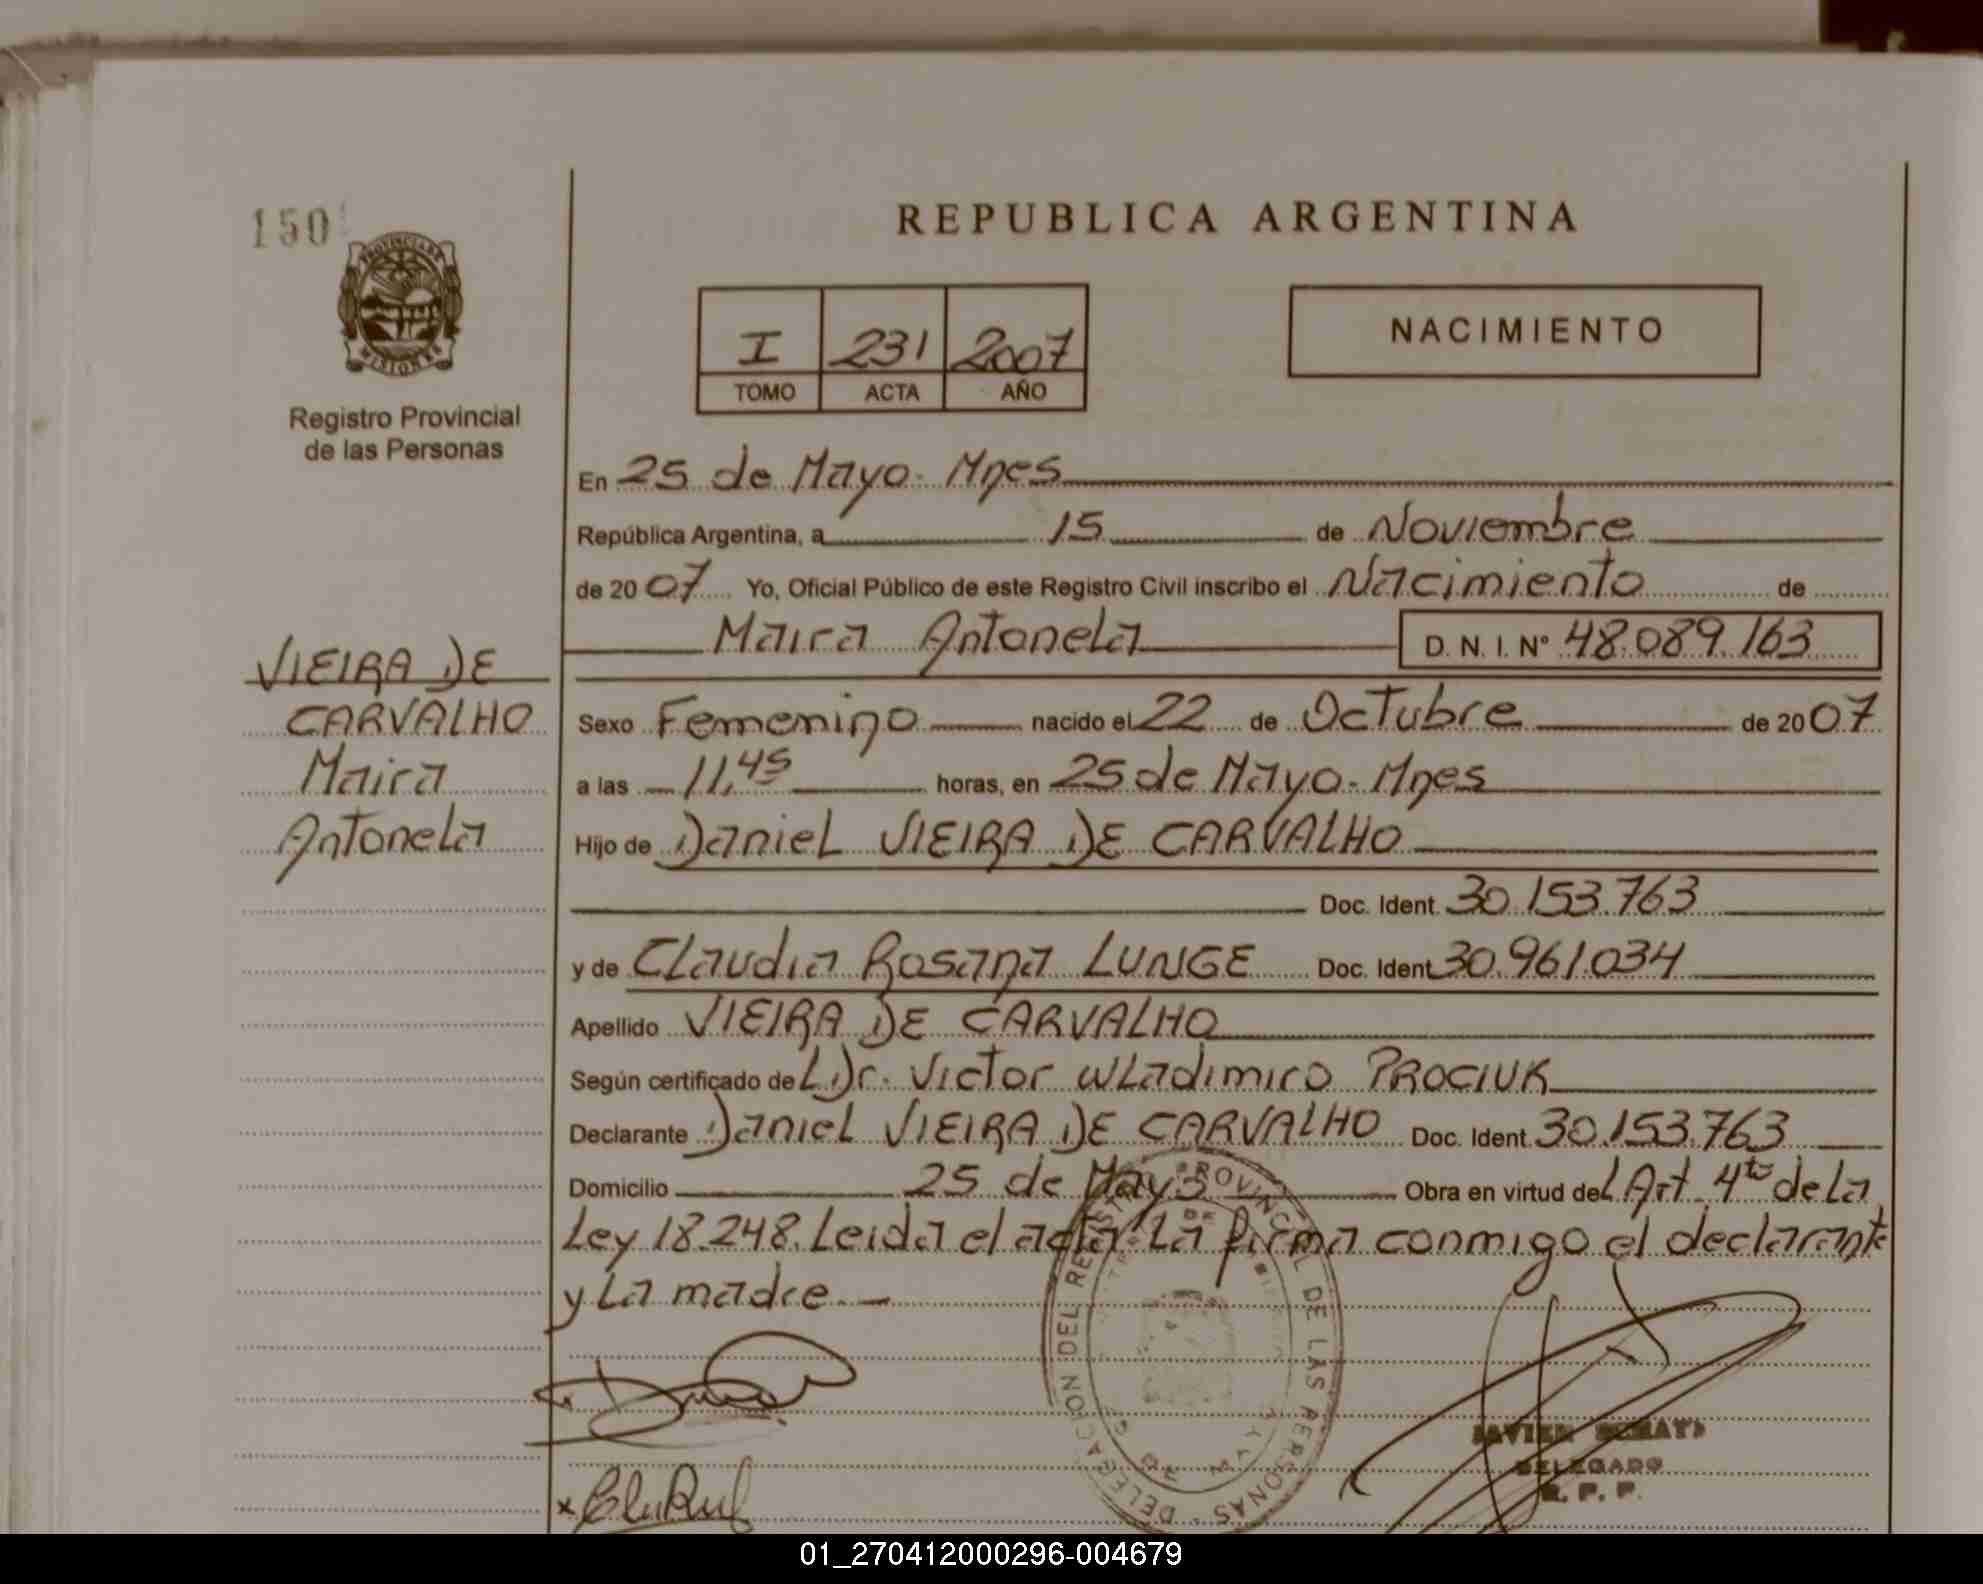 150
PROVINCIA DE
MISIONES
Registro Provincial
de las Personas
REPUBLICA ARGENTINA
I 231 2007
TOMO ACTA AÑO
NACIMIENTO
En 25 de Mayo - Mnes
República Argentina, a 15 de Noviembre
de 2007 Yo, Oficial Público de este Registro Civil inscribo el Nacimiento de
Maira Antonela D. N. I. Nº 48.089.163
VIEIRA DE
CARVALHO
Maira
Antonela
Sexo Femenino nacido el 22 de Octubre de 2007
a las 11,45 horas, en 25 de Mayo - Mnes
Hijo de Daniel VIEIRA DE CARVALHO
Doc. Ident. 30.153.763
y de Claudia Rosana LUNGE Doc. Ident 30.961.034
Apellido VIEIRA DE CARVALHO
Según certificado del Dr. Victor Wladimiro PROCIUK
Declarante Daniel VIEIRA DE CARVALHO Doc. Ident. 30.153.763
Domicilio 25 de Mayo Obra en virtud del Art. 4to de La
Ley 18.248. Leida el acta La firma conmigo el declarante
y La madre. —
DELEGACION DEL REGISTRO PROVINCIAL DE LAS PERSONAS
JAVIER
DELEGADO
R. P. P.
01_270412000296-004679